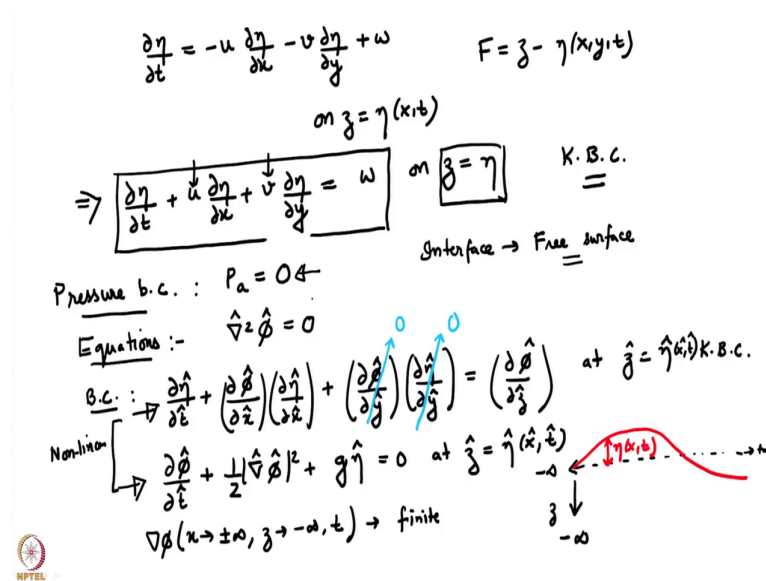 ∂η/∂t = -u ∂η/∂x - v ∂η/∂y + w
F = z - η(x,y,t)
on z = η(x,t)
⇒ ∂η/∂t + u ∂η/∂x + v ∂η/∂y = w on z = η K.B.C.
Interface → Free surface
Pressure b.c. : Pₐ = 0 ←
Equations :- ∇̂²φ̂ = 0
0 0
B.C. : → ∂η̂/∂t̂ + (∂φ̂/∂x̂)(∂η̂/∂x̂) + (∂φ̂/∂ŷ)(∂η̂/∂ŷ) = (∂φ̂/∂ẑ) at ẑ = η̂(x̂,t̂) K.B.C.
Non-linear
→ ∂φ̂/∂t̂ + 1/2|∇̂φ̂|² + gη̂ = 0 at ẑ = η̂(x̂,t̂)
η(x,t)
-∞
∇φ(x→±∞, z→-∞, t) → finite
z
-∞
NPTEL